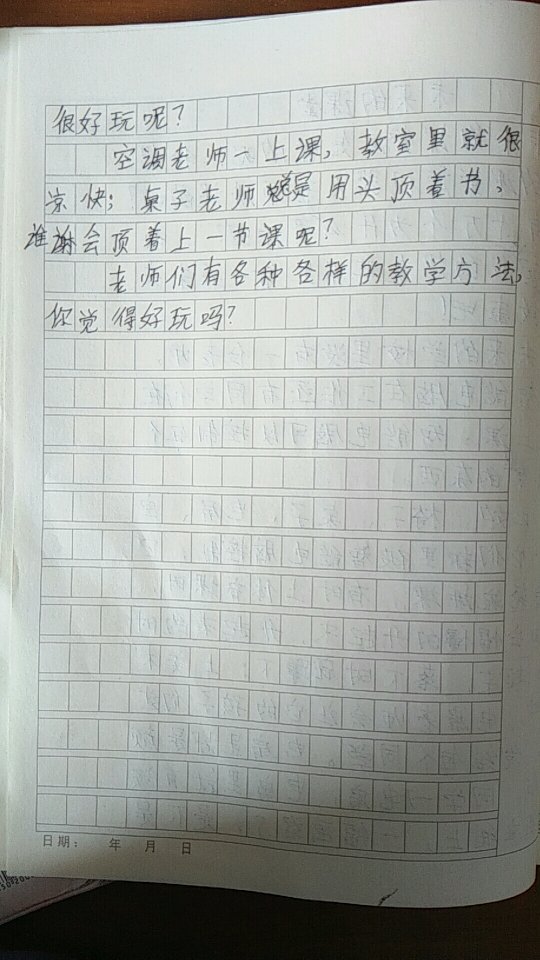 很好玩呢?
空调老师一上课,教室里就很
凉快;桌子老师总是用头顶着书,
谁会顶着上一节课呢?
老师们有各种各样的教学方法,
你觉得好玩吗?
日期: 年 月 日